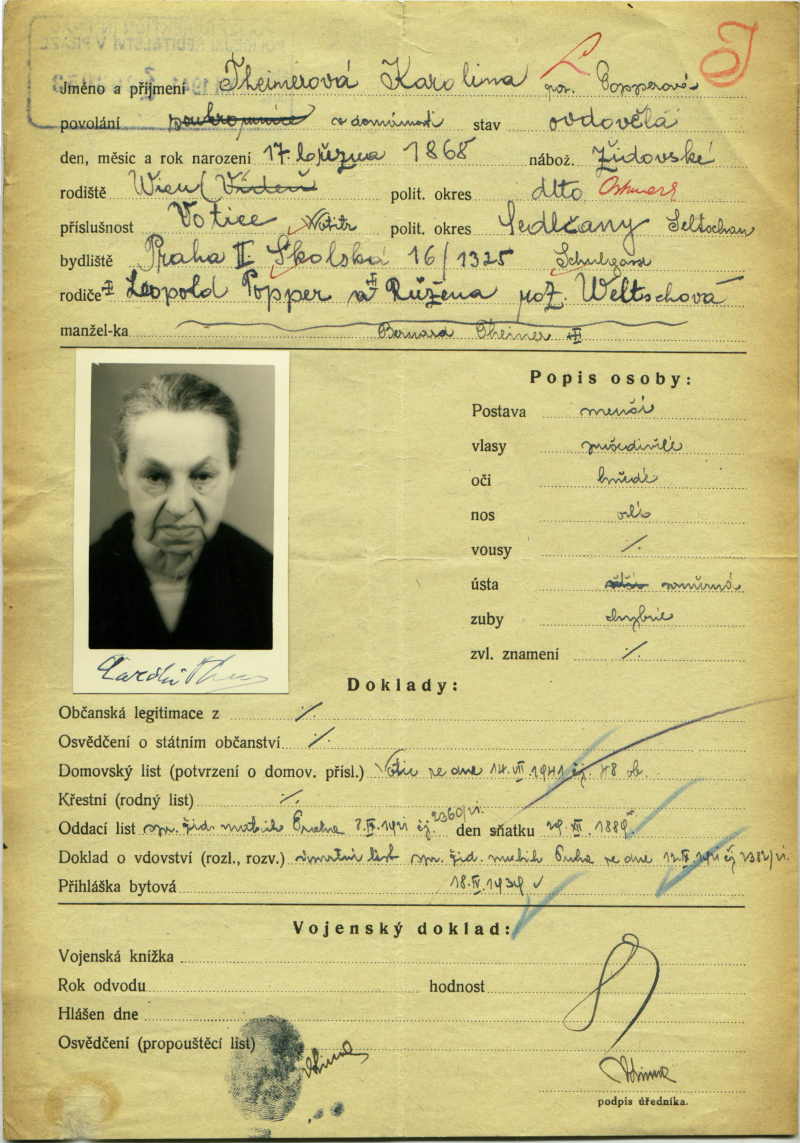 Jméno a příjmení Theinerová Karolina roz. Popperová
povolání soukromnice v domácnosti stav ovdovělá
den, měsíc a rok narození 17. března 1868 nábož. židovské
rodiště Wien (Vídeň) polit. okres dtto Ostmark
příslušnost Votice Wotitz polit. okres Sedlčany Seltschan
bydliště Praha II Školská 16/1325 Schulgasse
rodiče Leopold Popper a Růžena roz. Weltschová
manžel-ka Bernard Theiner
Popis osoby:
Postava menší
vlasy prošedivělé
oči hnědé
nos
vousy ⁒
ústa souměrná
zuby chybné
zvl. znamení ⁒
Doklady:
Občanská legitimace z ⁒
Osvědčení o státním občanství ⁒
Domovský list (potvrzení o domov. přísl.) Votic ze dne 14. VI. 1941 čj. 48 ob.
Křestní (rodný list) ⁒
Oddací list spr. žid. matrik Praha 1941 čj. 2360/VI. den sňatku 1889
Doklad o vdovství (rozl., rozv.) úmrtní list spr. žid. matrik Praha ze dne čj 2382/VI.
Přihláška bytová 18. IV. 1939
Vojenský doklad:
Vojenská knížka
Rok odvodu hodnost
Hlášen dne
Osvědčení (propouštěcí list)
podpis úředníka.